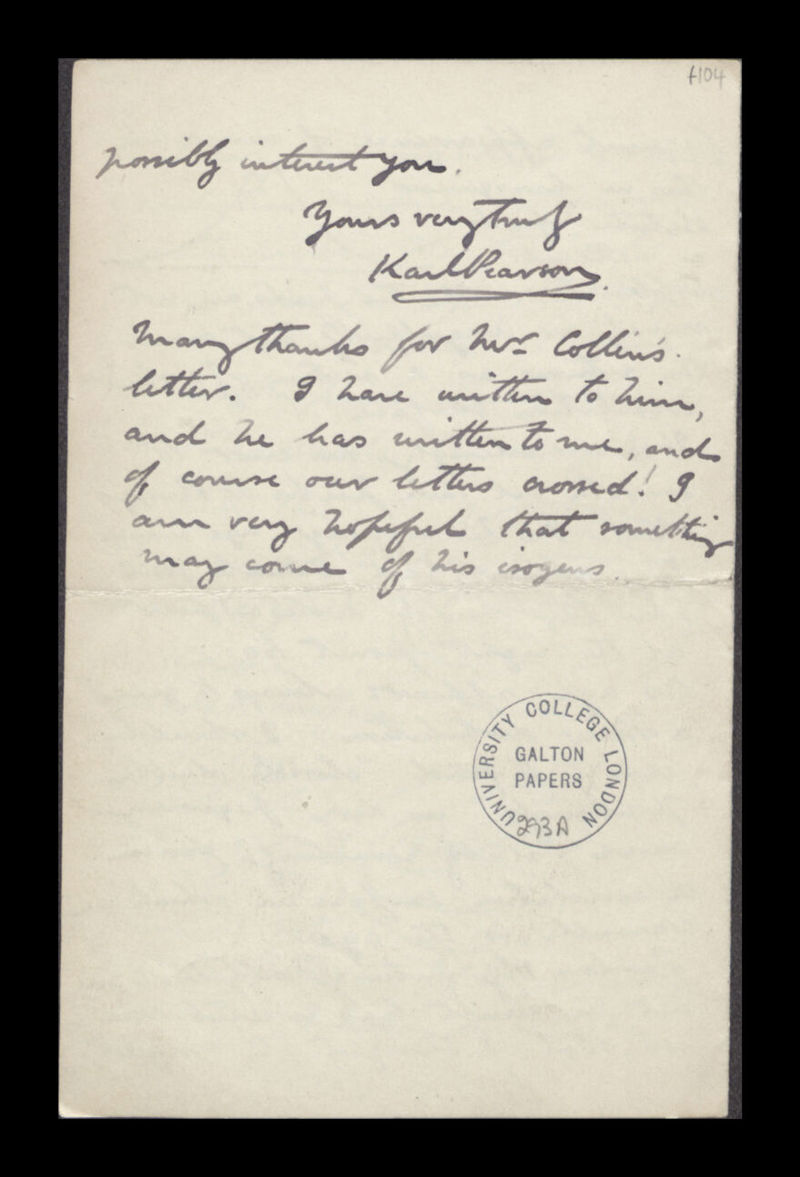 f104
possibly interest you.
Yours very truly
Karl Pearson.
Many thanks for Mr Collins'
letter. I have written to him,
and he has written to me, and
of course our letters crossed! I
am very hopeful that something
may come of his isogens
UNIVERSITY COLLEGE LONDON
GALTON
PAPERS
293A